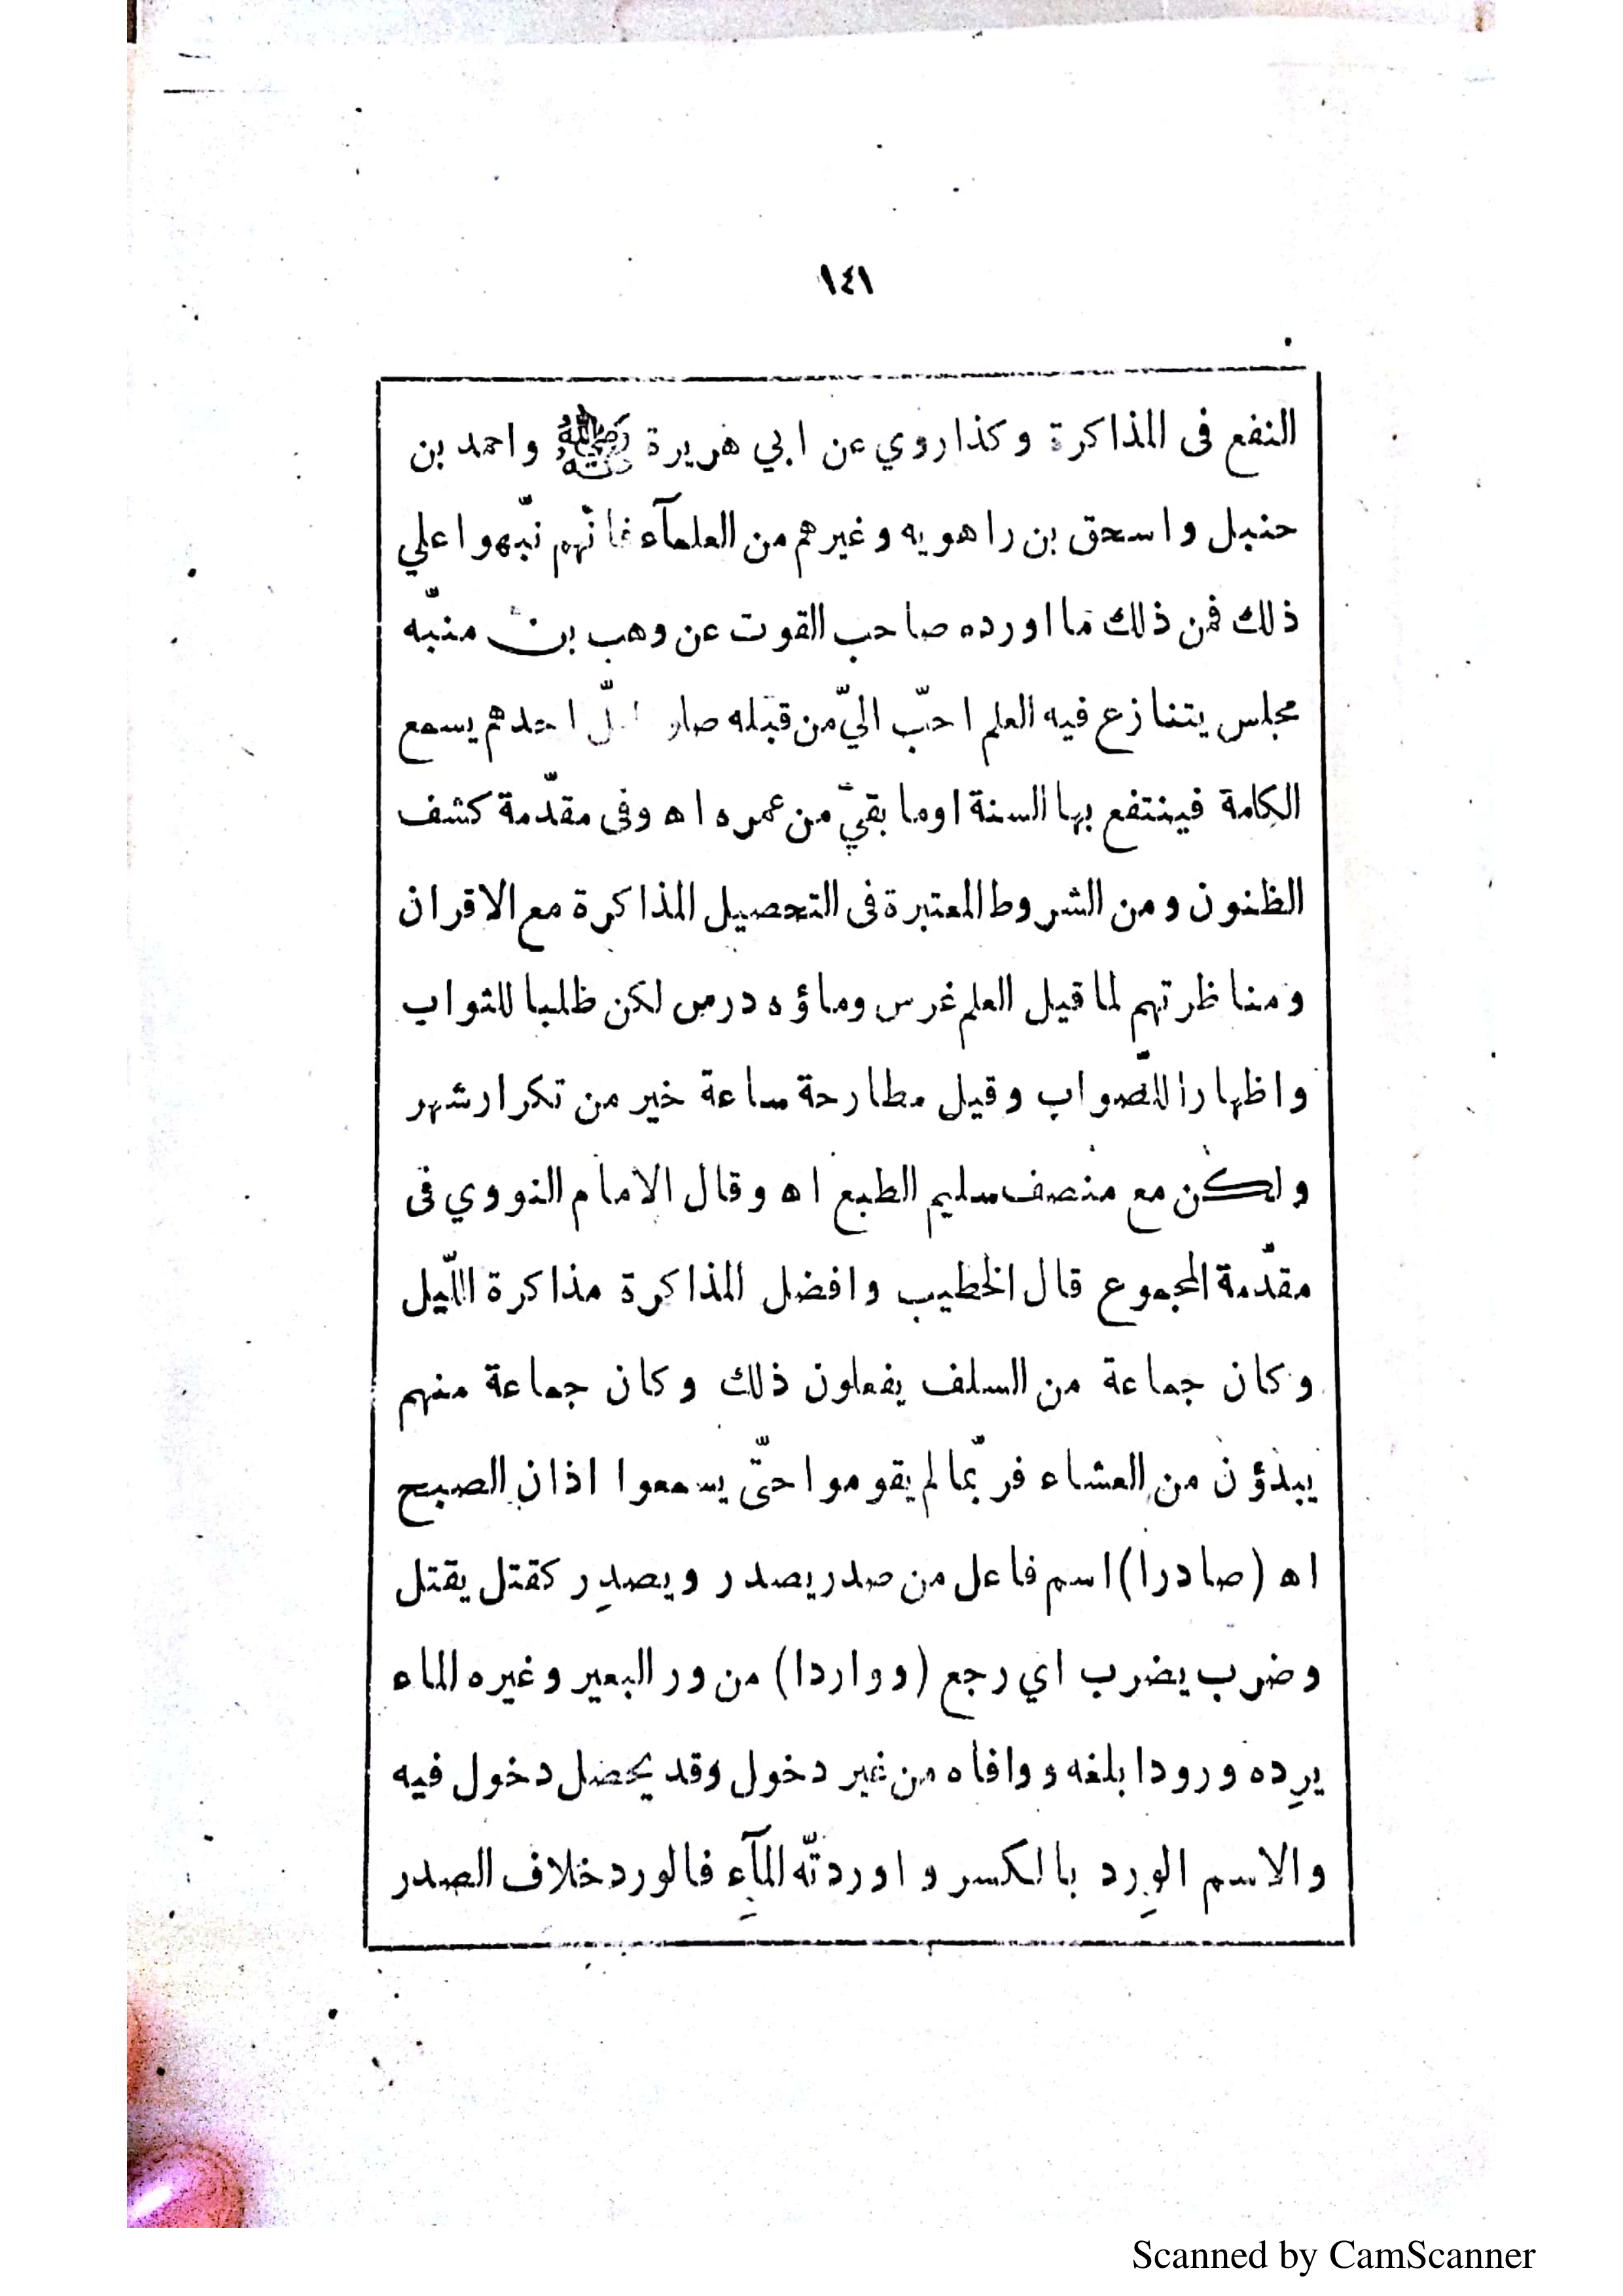 ١٤١
النفع فى المذاكرة وكذا روي عن ابي هريرة رضي الله عنه واحمد بن
حنبل واسحق بن راهويه وغيرهم من العلمآء فانّهم نبّهوا علي
ذلك فمن ذلك ما اورده صاحب القوت عن وهب بن منبّه
مجلس يتنازع فيه العلم احبّ اليّ من قبله احدهم يسمع
الكلمة فينتفع بها السنة اوما بقيّ من عمره اه وفى مقدّمة كشف
الظنون ومن الشروط المعتبرة فى التحصيل المذاكرة مع الاقران
ومناظرتهم لما قيل العلم غرس وماؤه درس لكن طلبا للثواب
واظهارا للصّواب وقيل مطارحة ساعة خير من تكرار شهر
ولكن مع منصف سليم الطبع اه وقال الامام النووي فى
مقدّمة المجموع قال الخطيب وافضل المذاكرة مذاكرة اللّيل
وكان جماعة من السلف يفعلون ذلك وكان جماعة منهم
يبدؤن من العشاء فربّما لم يقوموا حتّى يسمعوا اذان الصبح
اه (صادرا) اسم فاعل من صدر يصدر ويصدِر كقتل يقتل
وضرب يضرب اي رجع (وواردا) من ور البعير وغيره الماء
يرِده ورودا بلغه ووافاه من غير دخول وقد يحصل دخول فيه
والاسم الوِرد بالكسر واوردتّه المآءِ فالورد خلاف الصدر
Scanned by CamScanner